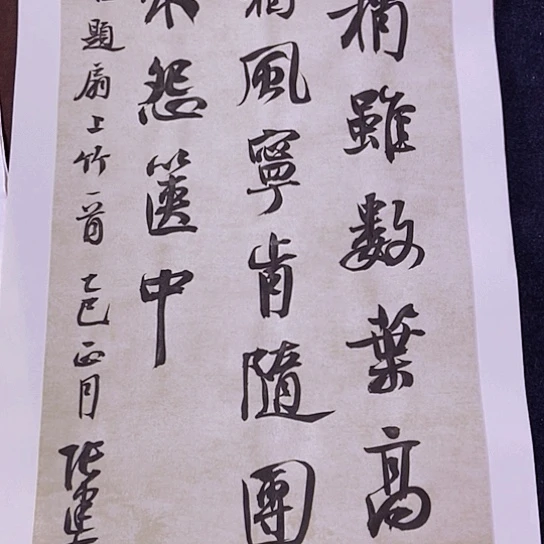 梢雖數葉高
風寧肯隨團
來怨篋中
題扇上竹一首 乙巳正月 張建